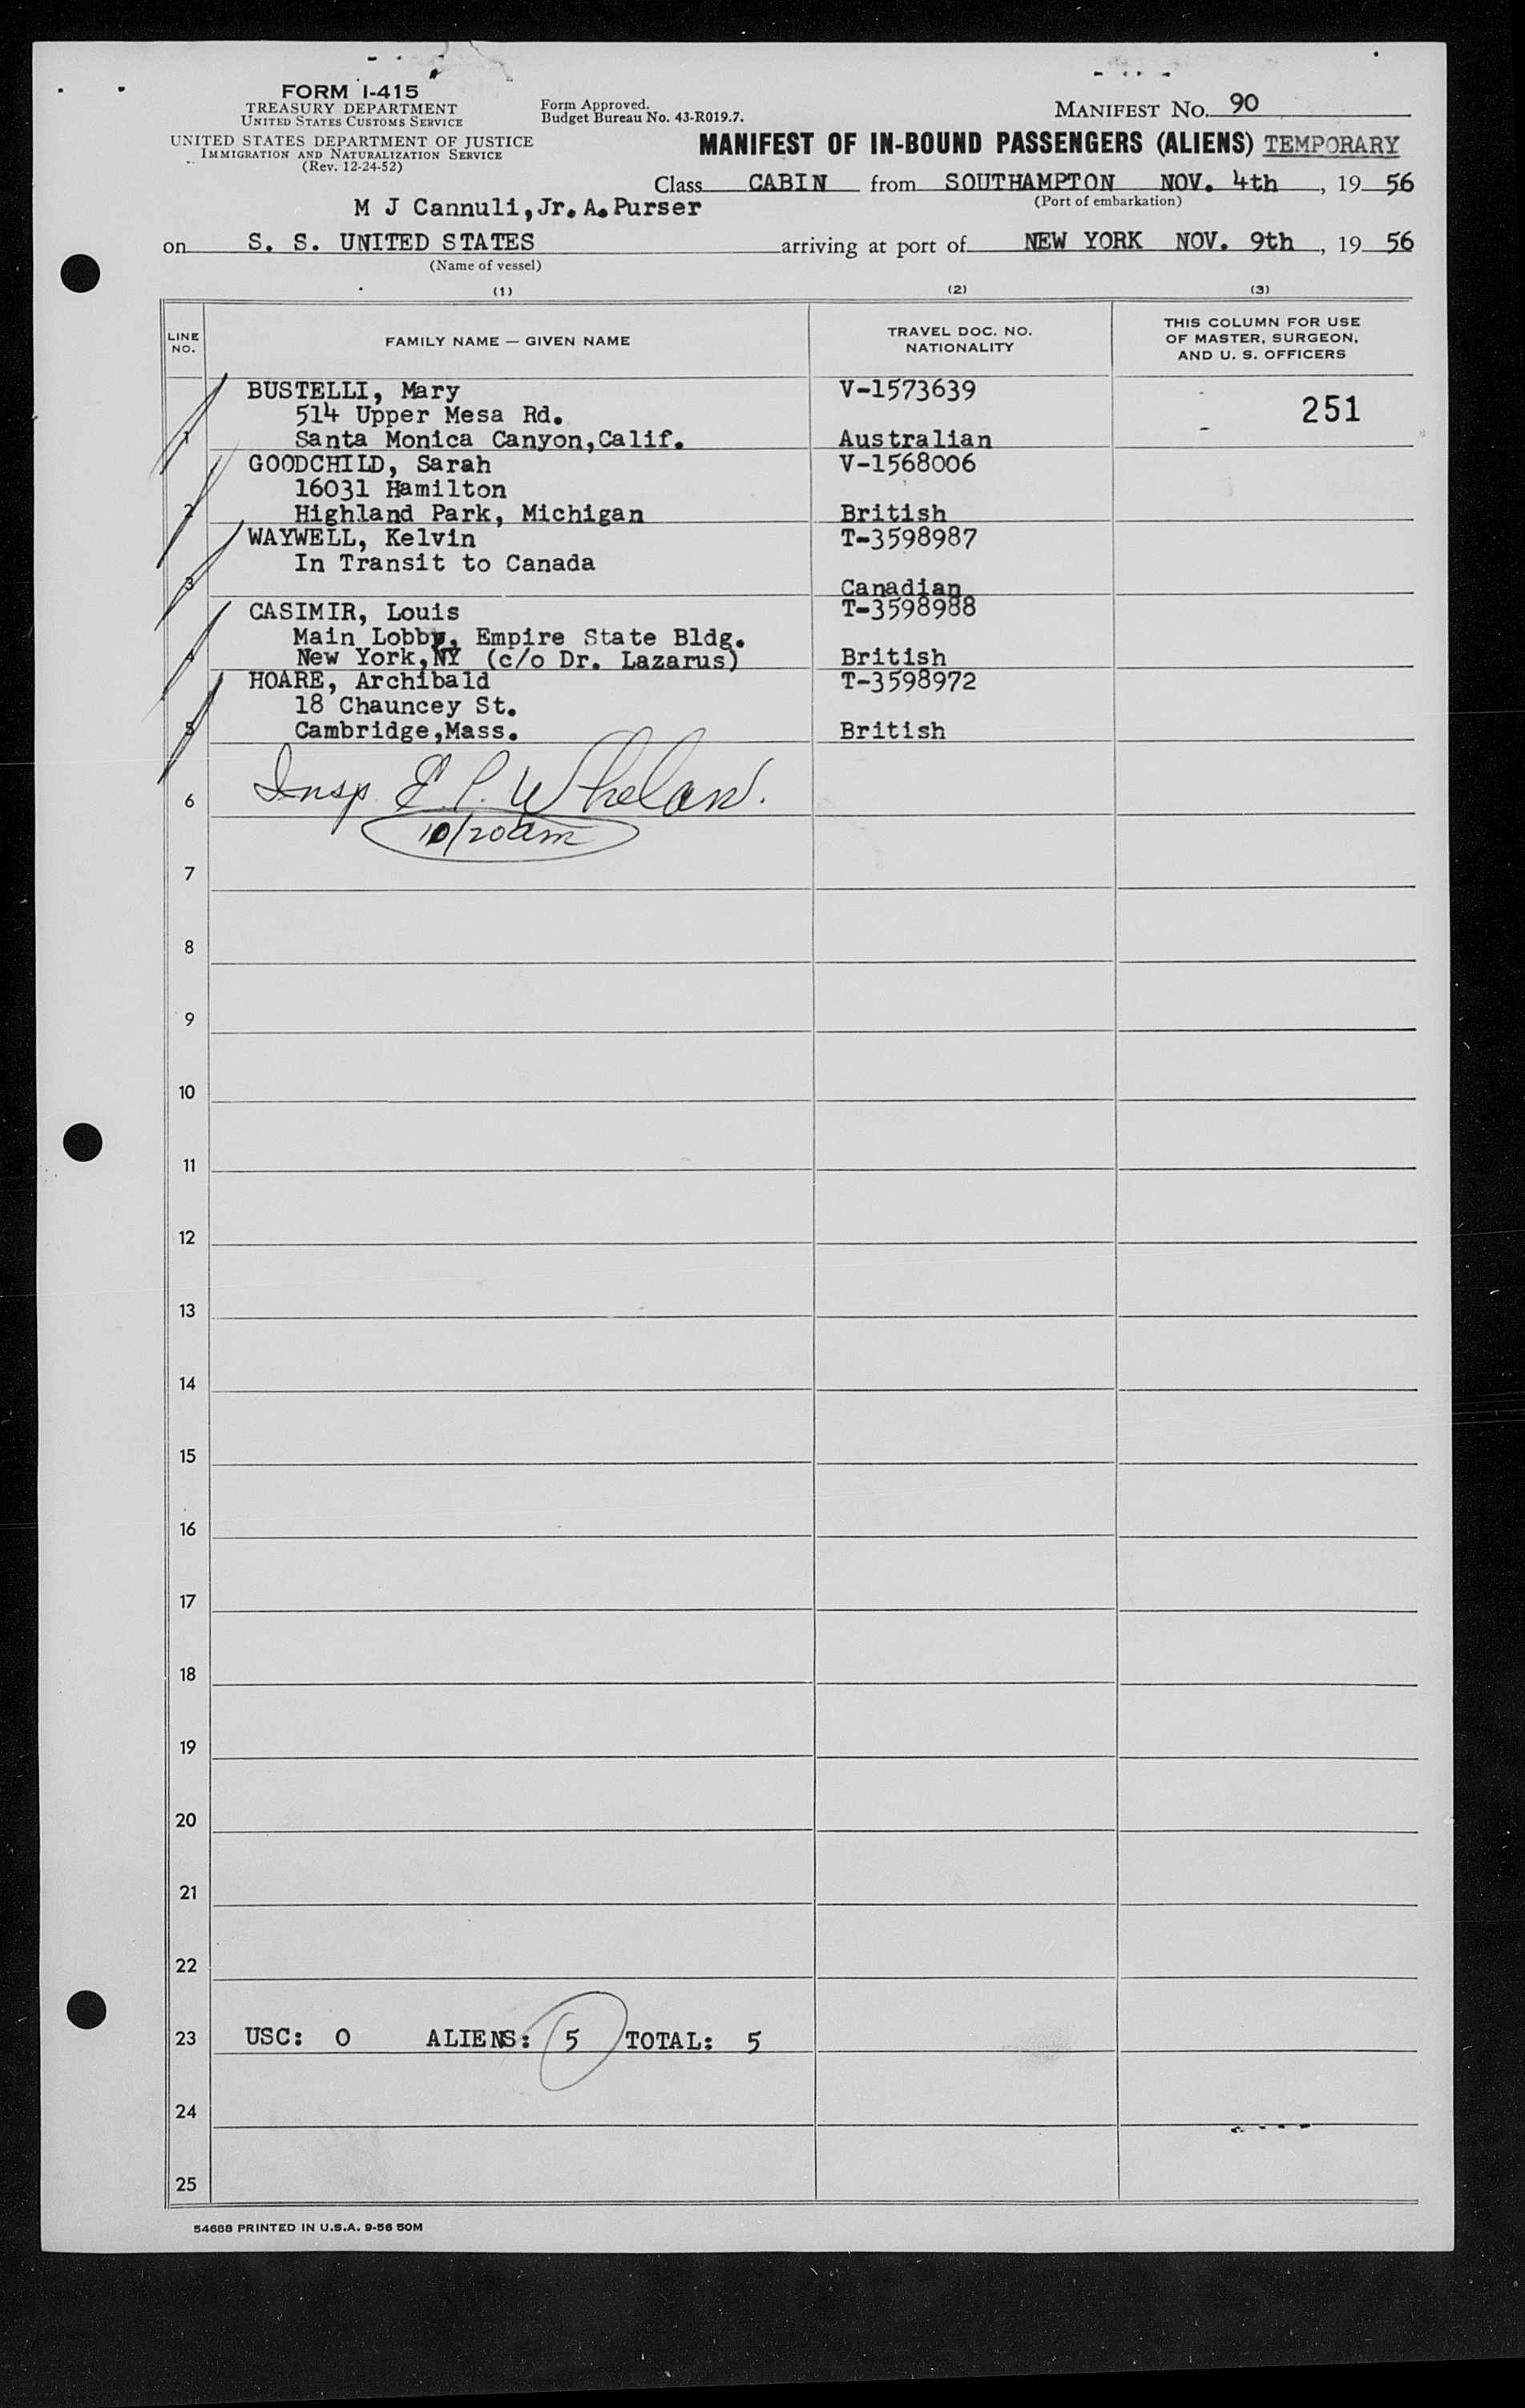 FORM I-415
TREASURY DEPARTMENT
UNITED STATES CUSTOMS SERVICE
UNITED STATES DEPARTMENT OF JUSTICE
IMMIGRATION AND NATURALIZATION SERVICE
(Rev. 12-24-52)
Form Approved.
Budget Bureau No. 43-R019.7.
MANIFEST NO. 90
MANIFEST OF IN-BOUND PASSENGERS (ALIENS) TEMPORARY
Class CABIN from SOUTHAMPTON NOV. 4th, 19 56
(Port of embarkation)
M J Cannuli,Jr.A.Purser
on S. S. UNITED STATES arriving at port of NEW YORK NOV. 9th, 19 56
(Name of vessel)
(1) (2) (3)
LINE NO. FAMILY NAME — GIVEN NAME TRAVEL DOC. NO. NATIONALITY THIS COLUMN FOR USE OF MASTER, SURGEON, AND U. S. OFFICERS
BUSTELLI, Mary V-1573639
514 Upper Mesa Rd. 251
1 Santa Monica Canyon,Calif. Australian
GOODCHILD, Sarah V-1568006
16031 Hamilton
2 Highland Park, Michigan British
WAYWELL, Kelvin T-3598987
In Transit to Canada
3 Canadian
CASIMIR, Louis T-3598988
Main Lobby, Empire State Bldg.
4 New York,NY (c/o Dr. Lazarus) British
HOARE, Archibald T-3598972
18 Chauncey St.
5 Cambridge,Mass. British
6 Insp E. P. Whelan.
10/20am
7
8
9
10
11
12
13
14
15
16
17
18
19
20
21
22
23 USC: 0 ALIENS: 5 TOTAL: 5
24
25
54688 PRINTED IN U.S.A. 9-56 50M